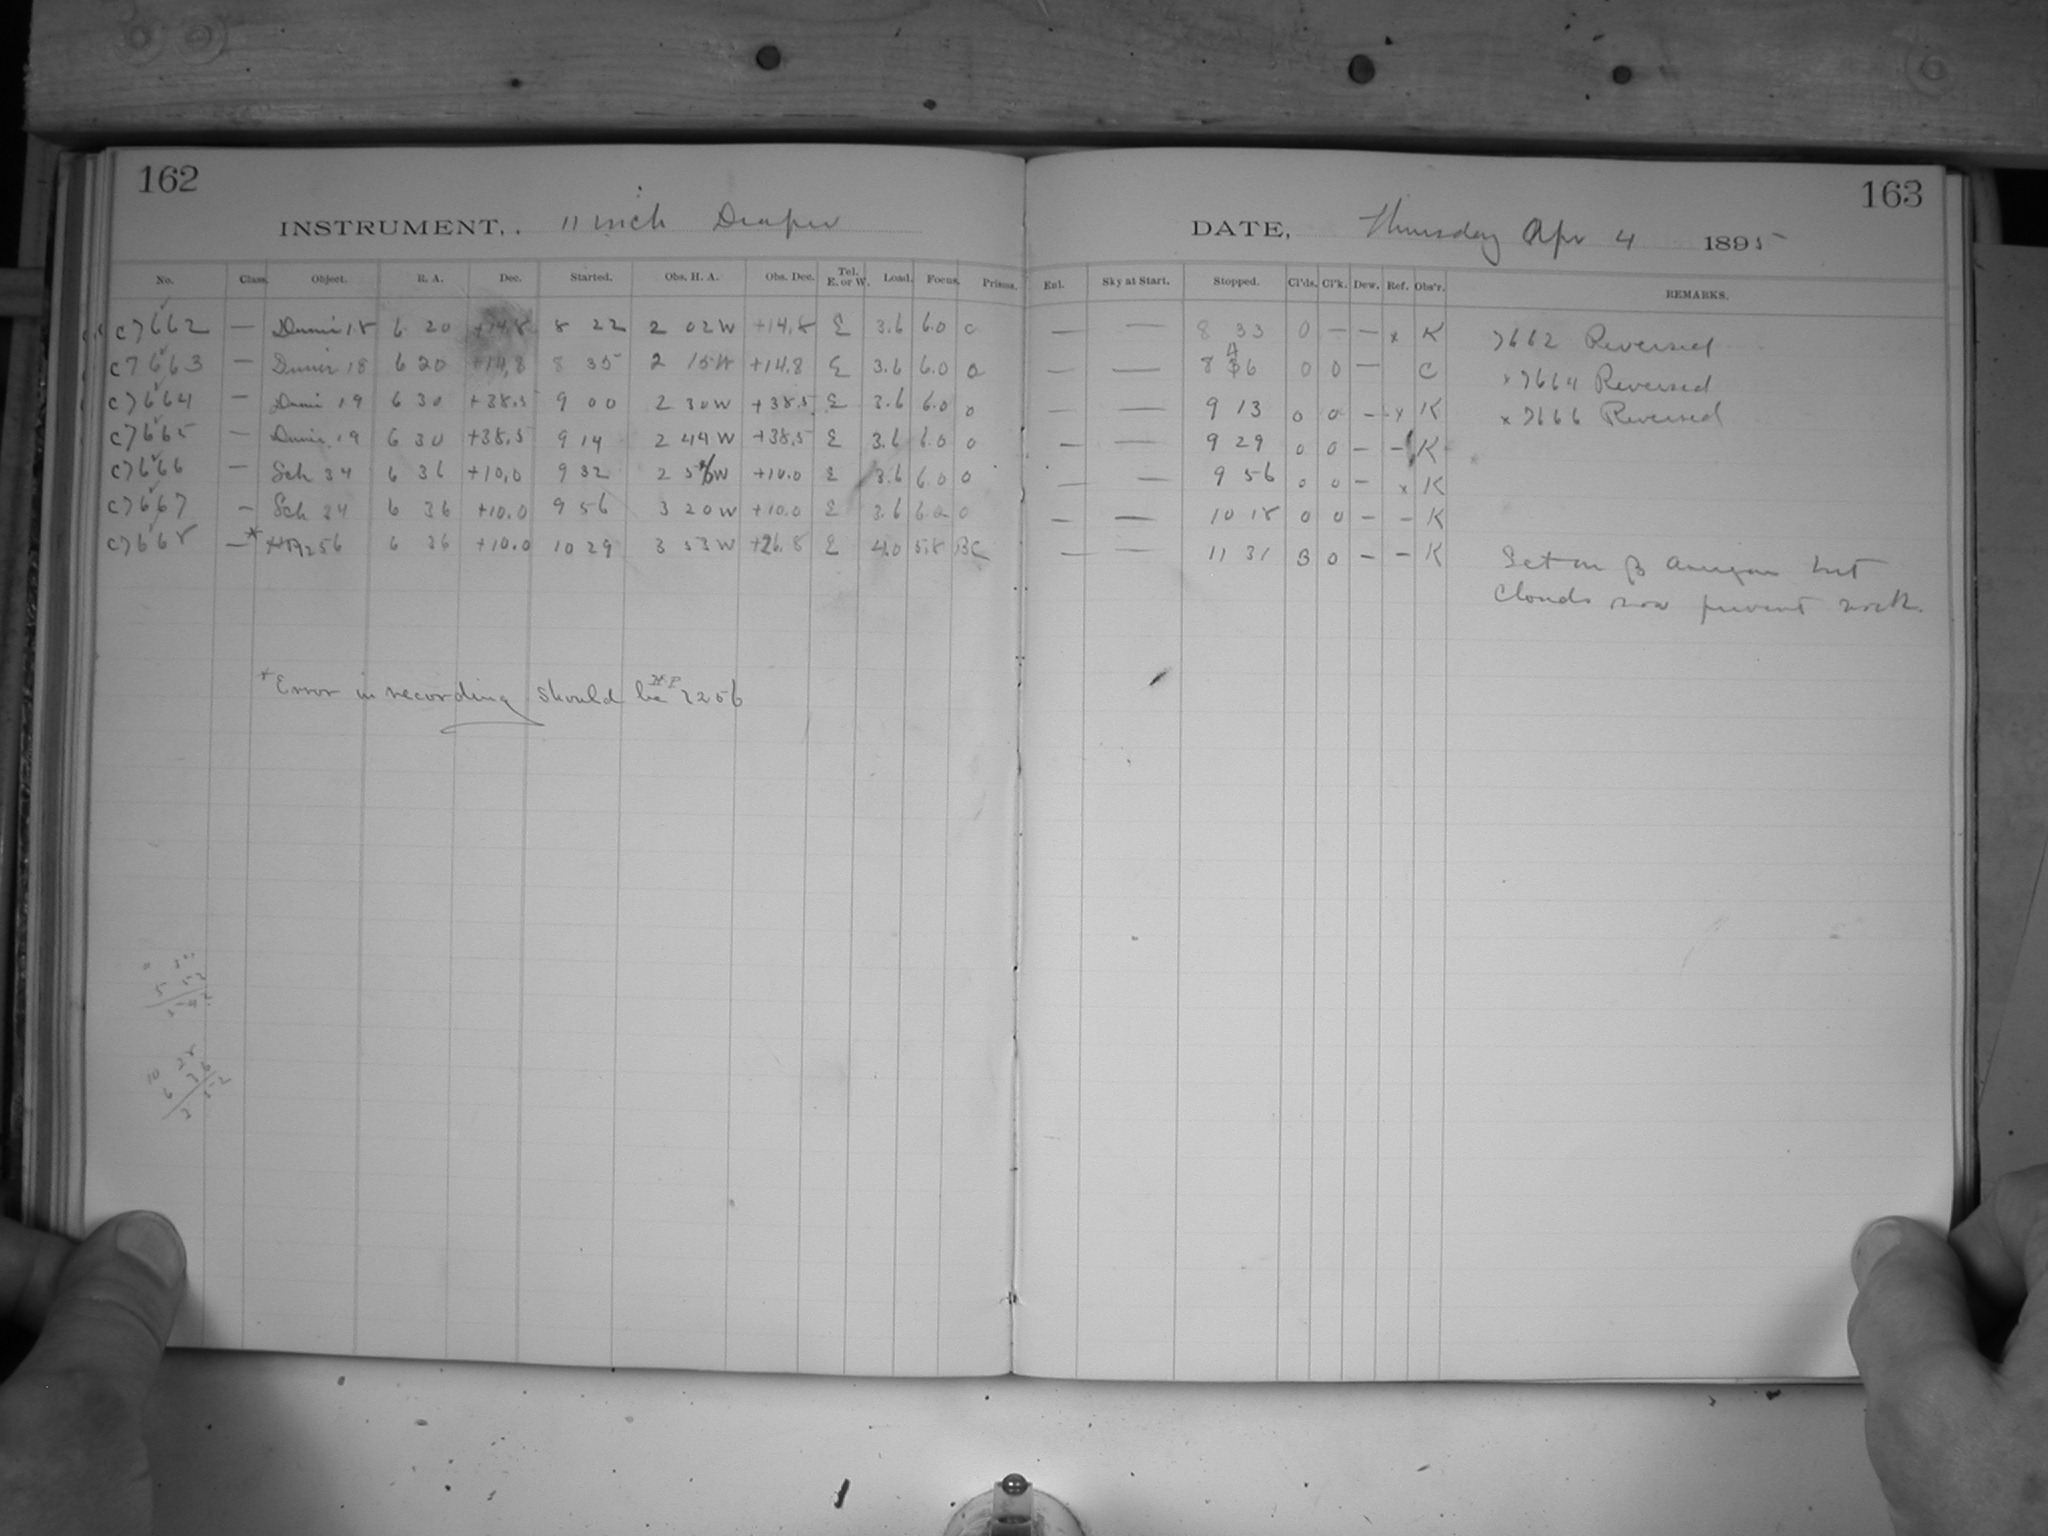 162
INSTRUMENT, . 11 inch Draper
No. Class. Object. R. A. Dec. Started. Obs. H. A. Obs. Dec. Tel. E. or W. Load. Focus. Prisms.
C7662 — Dunér 18 6 20 +14.8 8 22 2 02 W +14.8 E 3.6 6.0 0
C7663 — Dunér 18 6 20 +14.8 8 35 2 15 W +14.8 E 3.6 6.0 0
C7664 — Dunér 19 6 30 +38.5 9 00 2 30 W +38.5 E 3.6 6.0 0
C7665 — Dunér 19 6 30 +38.5 9 14 2 44 W +38.5 E 3.6 6.0 0
C7666 — Sch 34 6 36 +10.0 9 32 2 56 W +10.0 E 3.6 6.0 0
C7667 — Sch 34 6 36 +10.0 9 56 3 20 W +10.0 E 3.6 6.0 0
C7668 —* 256 6 36 +10.0 10 29 3 53 W +26.8 E 4.0 5.8 BC
*Error in recording should be HP 2256
163
DATE, Thursday Apr 4 1895
Enl. Sky at Start. Stopped. Cl'ds. Cl'k. Dew. Ref. Obs'r. REMARKS.
— — 8 33 0 — — x K 7662 Reversed
— — 8 46 0 0 — C x 7664 Reversed
— — 9 13 0 0 — x K x 7666 Reversed
— — 9 29 0 0 — — K
— — 9 56 0 0 — x K
— — 10 18 0 0 — — K
— — 11 31 3 0 — — K Set on β Aurigae but
Clouds now prevent work.